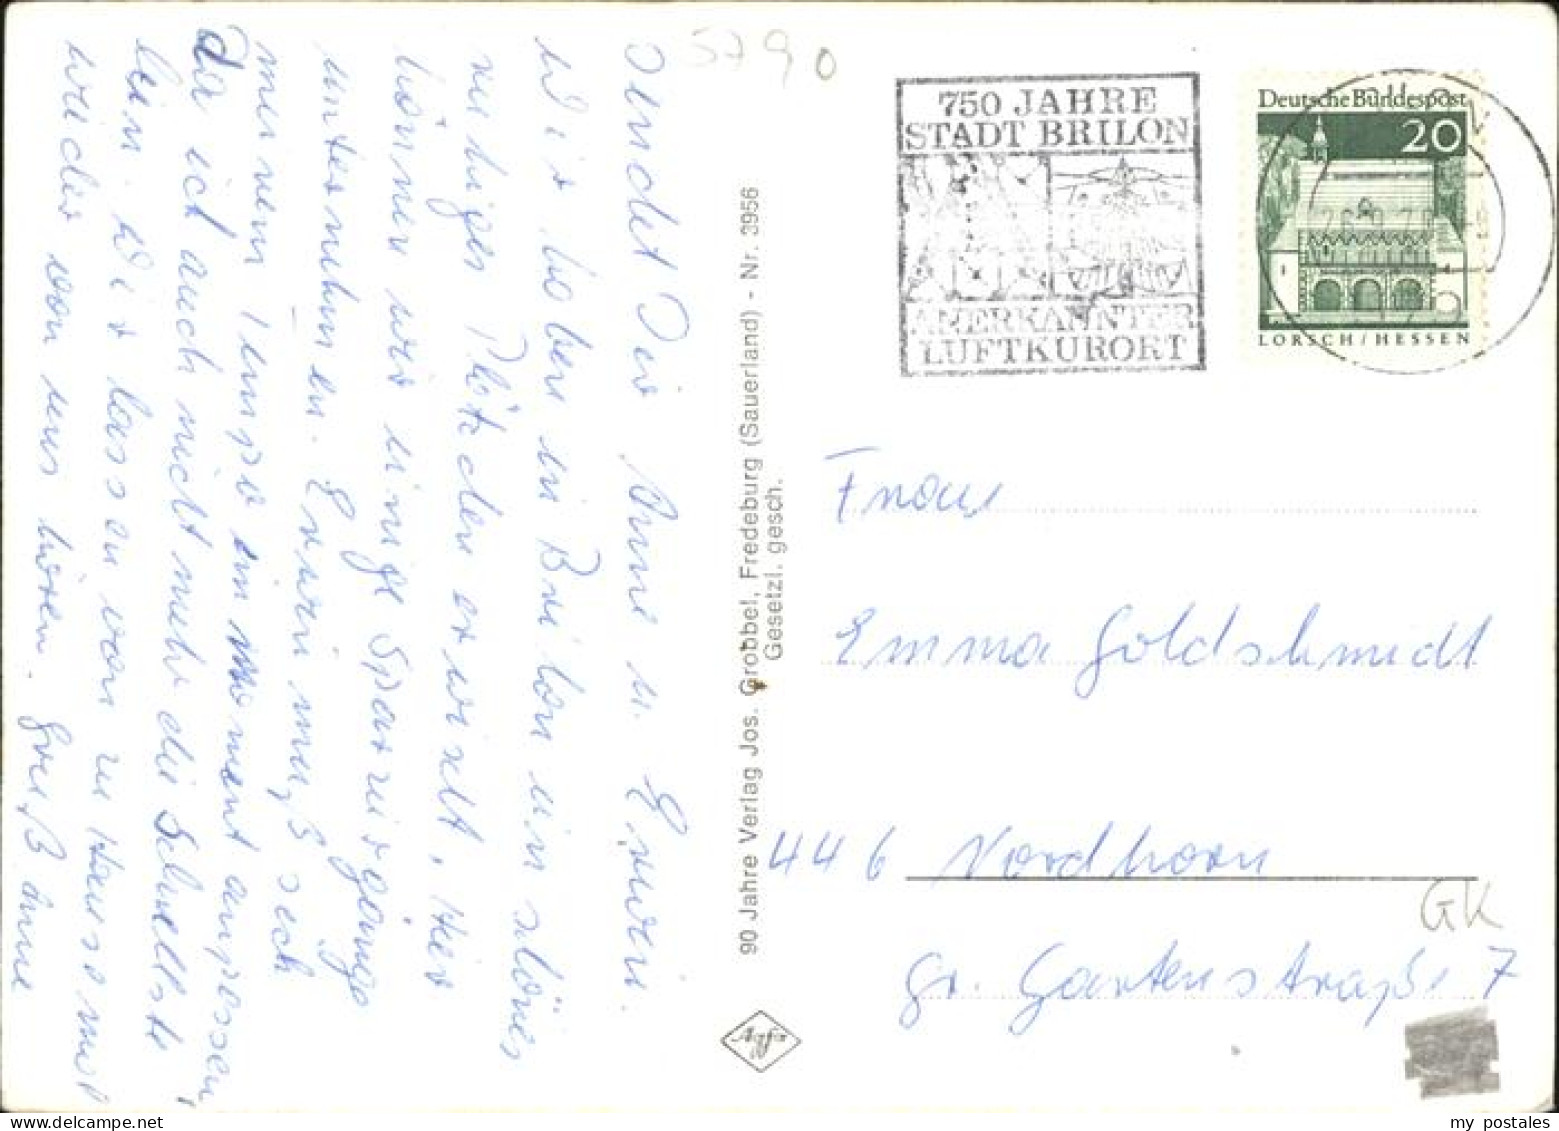 5790
750 JAHRE
STADT BRILON
ANERKANNTER
LUFTKURORT
Deutsche Bundespost
20
LORSCH/HESSEN
sendet Dir Anne u. Erwin.
Wir haben in Brilon ein schönes
ruhiges Plätzchen erwischt. Hier
können wir einige Spaziergänge
unternehmen. Erwin muß sich
meinem Tempo im Moment anpassen,
da ich auch nicht mehr die Schnellste
bin. Wir lassen von zu Hause mal
wieder von uns hören. Gruß Anne
90 Jahre Verlag Jos. Grobbel, Fredeburg (Sauerland) - Nr. 3956
Gesetzl. gesch.
Agfa
Frau
Emma Goldschmidt
446 Nordhorn
GK
Gr. Gartenstraße 7
my postales